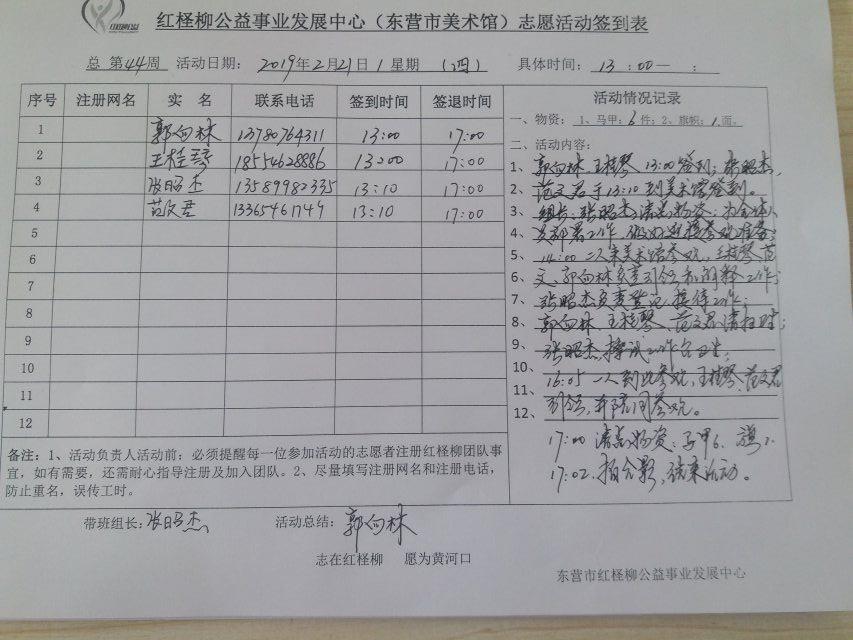 红柽柳公益事业发展中心（东营市美术馆）志愿活动签到表
总 第44周 活动日期： 2019年2月21日1星期 （四） 具体时间： 13：00— ：
序号 注册网名 实 名 联系电话 签到时间 签退时间 活动情况记录
1 郭向林 13780764311 13:00 17:00
2 王桂琴 18554628886 13:00 17:00
3 张昭杰 13589982335 13:10 17:00
4 范文君 13365461749 13:10 17:00
5
6
7
8
9
10
11
12
一、物资： 1、马甲：6件；2、旗帜：1面。
二、活动内容：
1、郭向林 王桂琴 13:00签到；张昭杰、
2、范文君于13:10到美术馆签到。
3、组长、张昭杰清点物资；为全体人
4、员部署工作，做好迎接参观准备；
5、14:00 二人来美术馆参观，王桂琴 范
6、文、郭向林负责引领和讲解工作；
7、张昭杰负责登记、接待工作；
8、郭向林、王桂琴、范文君清扫卫生；
9、张昭杰、擦试工作台卫生；
10、16:05 一人到此参观，王桂琴、范文君
11、引领，并陪同参观。
12、
17:00 清点物资：马甲6、旗1.
17:02. 拍合影，结束活动。
备注：1、活动负责人活动前：必须提醒每一位参加活动的志愿者注册红柽柳团队事
宜，如有需要，还需耐心指导注册及加入团队。2、尽量填写注册网名和注册电话，
防止重名，误传工时。
带班组长：张昭杰 活动总结：郭向林
志在红柽柳 愿为黄河口
东营市红柽柳公益事业发展中心